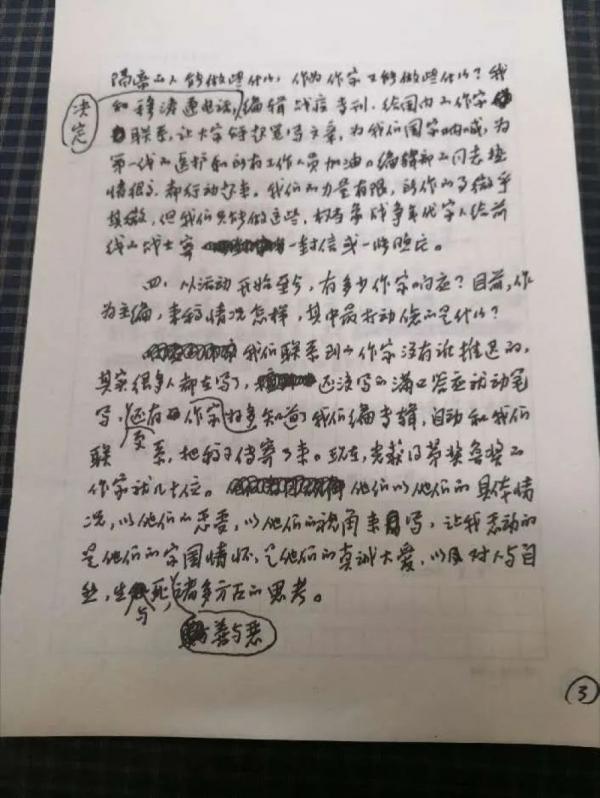 隔离的人能做些什么，作为作家又能做些什么？我
决定
和穆涛通电话，编辑战疫专刊，给国内的作家
联系，让大家能起笔写文章，为我们国家呐喊，为
第一线的医护和所有工作人员加油。编辑部的同志热
情很高，都行动起来。我们的力量有限，所作的了微乎
其微，但我们只能做这些，权当是战争年代家人给前
线的战士寄一封信或一些暖衣。
四、从运动开始至今，有多少作家响应？目前，作
为主编，来稿情况怎样，其中最打动您的是什么？
我们联系到的作家没有谁推迟的，
其实很多人都在写了，还没写的满口答应就动笔
写，还有的作家好多知道了我们编专辑，自动和我们
联系，把稿子传寄了来。现在，光获得茅奖鲁奖的
更
作家就几十位。他们以他们的具体情
况，以他们的感受，以他们的视角来写，让我感动的
是他们的家国情怀，是他们的真诚大爱，以及对人与自
然，生与死，诸多方面的思考。
善与恶
3